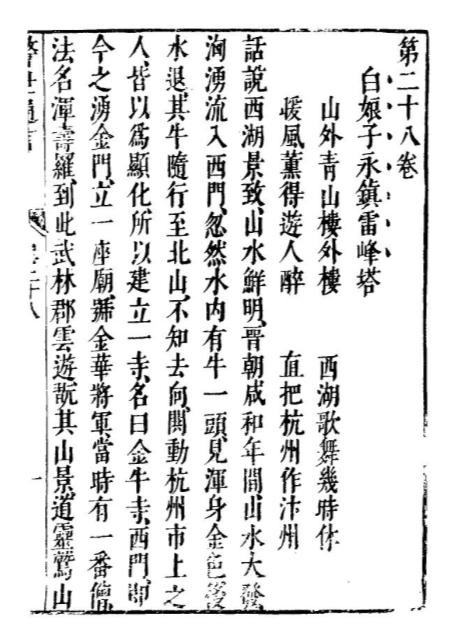 第二十八卷
白娘子永鎮雷峰塔
山外青山樓外樓　西湖歌舞幾時休
暖風薰得遊人醉　直把杭州作汴州
話說西湖景致、山水鮮明、晉朝咸和年間、山水大發
洶湧流入西門、忽然水内有牛一頭、見渾身金色、後
水退、其牛隨行至北山、不知去向、鬨動杭州市上之
人、皆以爲顯化、所以建立一寺、名曰金牛寺、西門、即
今之湧金門、立一座廟、號金華將軍、當時有一番僧
法名渾壽羅、到此武林郡雲遊、翫其山景、道靈鷲山
警世通言
卷二十八
一